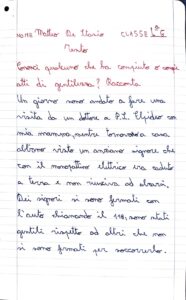 NOME Matteo De Ilario CLASSE 1ª E
Conosci qualcuno che ha compiuto o compie
atti di gentilezza? Racconta
Un giorno sono andato a fare una
visita da un dottore a P.S. Elpidio con
mia mamma, mentre tornavamo a casa
abbiamo visto un anziano signore che
con il monopattino elettrico era caduto
a terra e non riusciva ad alzarsi.
Dei signori si sono fermati con
l'auto chiamando il 118, sono stati
gentili rispetto ad altri che non
si sono fermati per soccorrerlo.